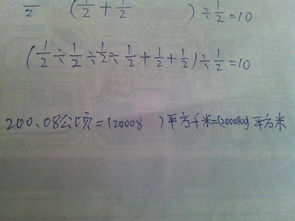 2 (1/2 + 1/2 ) ÷ 1/2 = 10
(1/2 ÷ 1/2 ÷ 1/2 ÷ 1/2 + 1/2 + 1/2) ÷ 1/2 = 10
200.08公顷=(20008 )平方千米=(2000800)平方米